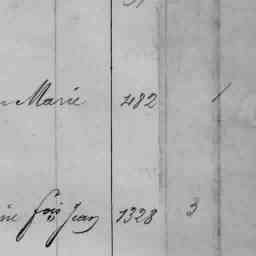 Marie 482 1
fois Jean 1328 3